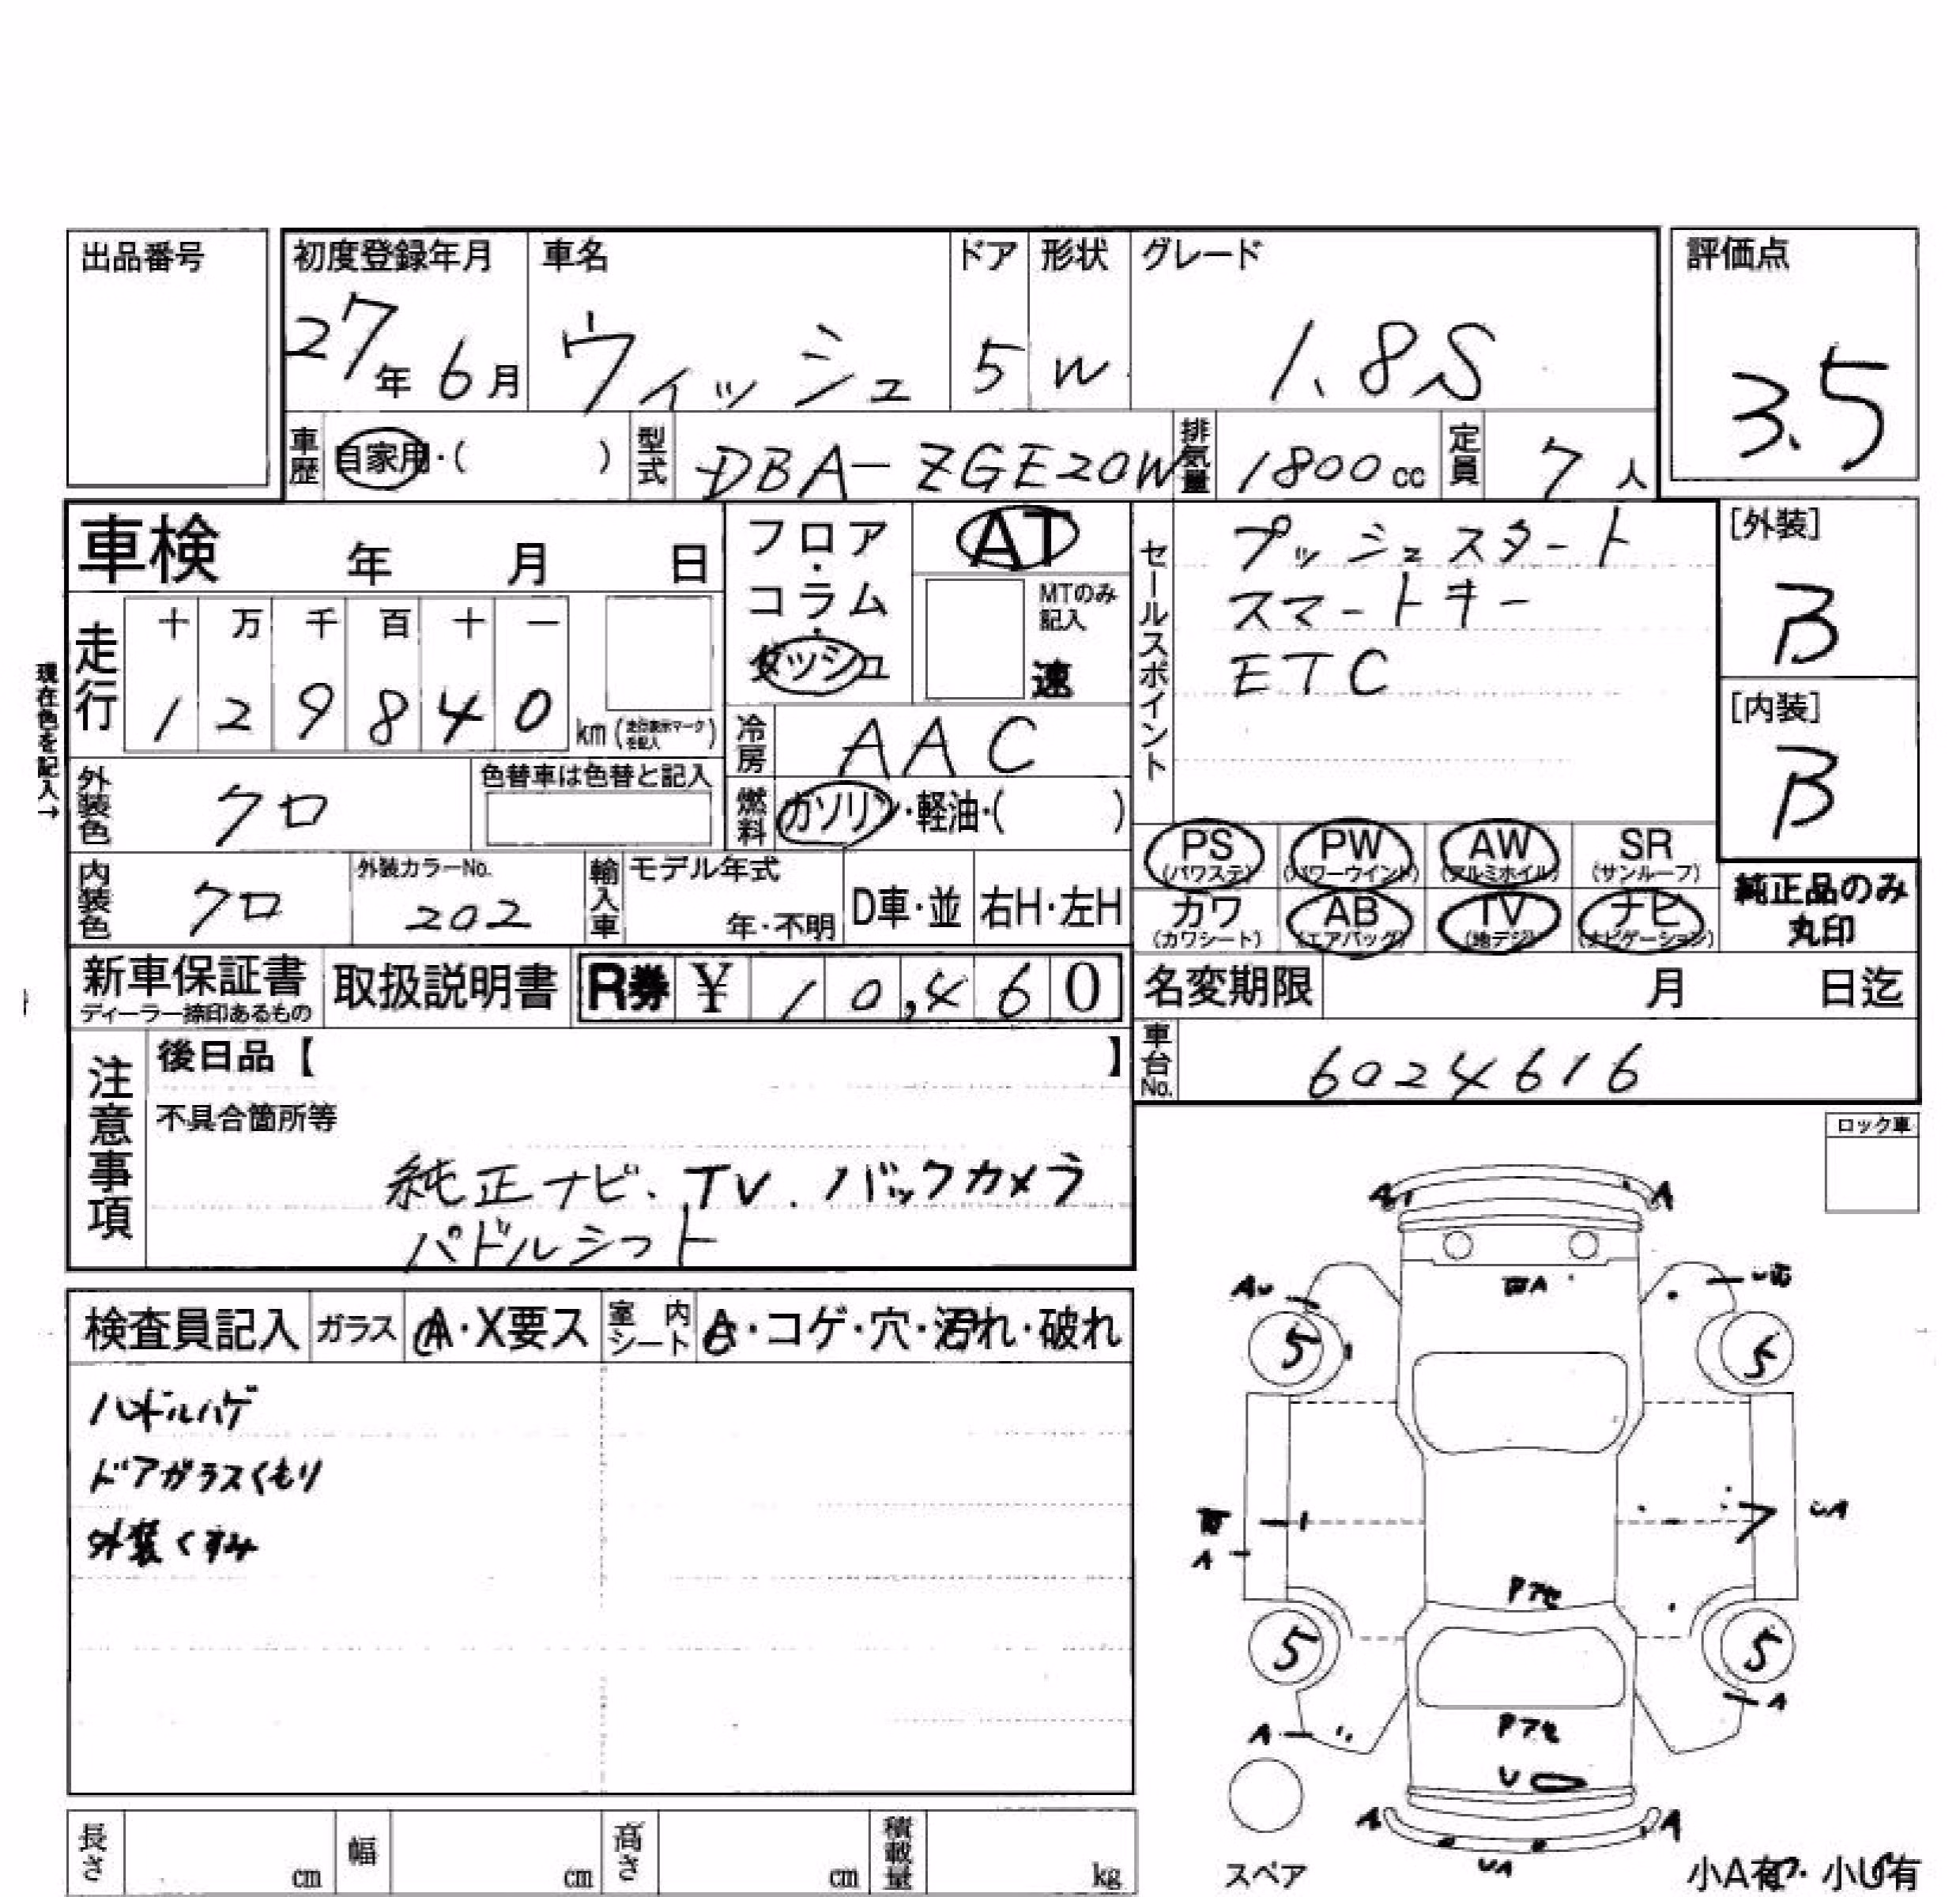 出品番号
初度登録年月 車名 ドア 形状 グレード 評価点
27年6月 ウィッシュ 5 W 1.8S 3.5
車歴 自家用・( ) 型式 DBA-ZGE20W 排気量 1800cc 定員 7人
車検 年 月 日
フロア・コラム・ダッシュ
AT
MTのみ記入
速
セールスポイント
プッシュスタート
スマートキー
ETC
[外装]
B
[内装]
B
現在色を記入→
走行 十 万 千 百 十 一
1 2 9 8 4 0 km(走行表示マークを記入)
冷房 AAC
外装色 クロ 色替車は色替と記入
燃料 ガソリン・軽油・( )
PS(パワステ) PW(パワーウインド) AW(アルミホイル) SR(サンルーフ)
カワ(カワシート) AB(エアバッグ) TV(地デジ) ナビ(ナビゲーション)
純正品のみ
丸印
内装色 クロ 外装カラーNo. 202 輸入車 モデル年式 年・不明 D車・並 右H・左H
新車保証書 ディーラー捺印あるもの 取扱説明書 R券 ¥ 10,460
名変期限 月 日迄
車台No. 6024616
注意事項
後日品【 】
不具合箇所等
純正ナビ、TV、バックカメラ
パドルシフト
ロック車
検査員記入 ガラス A・X要ス 室内シート A・コゲ・穴・汚れ・破れ
ハンドルハゲ
ドアガラスくもり
外装くすみ
A A
AU
A
5 5
A
UA
Pアセ
5 5
A
A
Pアセ
U
A A
UA
スペア
小A有・小U有
長さ cm 幅 cm 高さ cm 積載量 kg